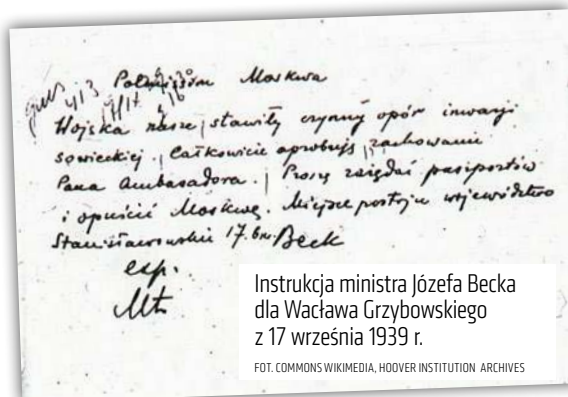 Polmission Moskwa
413
Wojska nasze stawiły czynny opór inwazji
sowieckiej. Całkowicie aprobuję zachowanie
Pana Ambasadora. Proszę zażądać paszportów
i opuścić Moskwę. Miejsce postoju województwo
Stanisławowskie 17. bm. Beck
exp.
Instrukcja ministra Józefa Becka
dla Wacława Grzybowskiego
z 17 września 1939 r.
FOT. COMMONS WIKIMEDIA, HOOVER INSTITUTION ARCHIVES